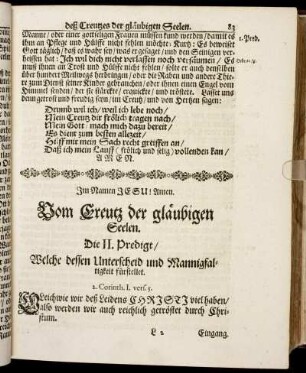 deß Creutzes der gläubigen Seelen. 83
Manne/ oder einer gottseligen Frauen müssen kund werden/ damit es
ihm an Pflege und Hülffe nicht fehlen möchte. Kurtz: Es beweiset
Gott täglich/ daß es wahr sey/ was er gesaget/ und den Seinigen ver-
heissen hat: Ich wil dich nicht verlassen noch versäumen/ Es
muß ihnen an Trost und Hülffe nicht fehlen/ solte er auch denselben
über hundert Meilwegs herbringen/ oder die Raben und andere Thie-
re zum Dienst seiner Kinder gebrauchen/ oder ihnen einen Engel vom
Himmel senden/ der sie stärckte/ wartete und tröstete. Lasset uns
dann getrost und freudig seyn/ im Creutz/ und von Hertzen sagen:
1. Pred.
Drumb wil ich/ weil ich lebe noch/
Mein Creutz dir frölich tragen nach/
Mein Gott mach mich dazu bereit/
Es dient zum besten allezeit/
Hilff mir mein Sach recht greiffen an/
Daß ich mein Lauff (frölich und selig) vollenden kan/
AMEN.
Im Namen JESU! Amen.
Vom Creutz der gläubigen
Seelen.
Die II. Predigt/
Welche dessen Unterscheid und Mannigfal-
tigkeit fürstellet.
2. Corinth. I. vers. 5.
GLeichwie wir deß Leidens CHRISTI viel haben/
also werden wir auch reichlich getröstet durch Chri-
stum.
L 2 Eingang.